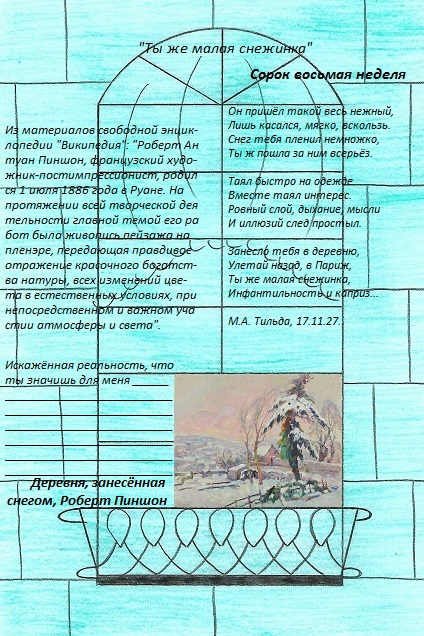 "Ты же малая снежинка"
Сорок восьмая неделя
Из материалов свободной энцик-
лопедии "Википедия": "Роберт Ан
туан Пиншон, французский худо-
жник-постимпрессионист, родил
ся 1 июля 1886 года в Руане. На
протяжении всей творческой дея
тельности главной темой его ра
бот была живопись пейзажа на
пленэре, передающая правдивое
отражение красочного богатст-
ва натуры, всех изменений цве-
та в естественных условиях, при
непосредственном и важном уча
стии атмосферы и света".
Искажённая реальность, что
ты значишь для меня
Он пришёл такой весь нежный,
Лишь касался, мягко, вскользь.
Снег тебя пленил немножко,
Ты ж пошла за ним всерьёз.
Таял быстро на одежде
Вместе таял интерес.
Ровный слой, дыхание, мысли
И иллюзий след простыл.
Занесло тебя в деревню,
Улетай назад, в Париж,
Ты же малая снежинка,
Инфантильность и каприз...
М.А. Тильда, 17.11.27.
Деревня, занесённая
снегом, Роберт Пиншон